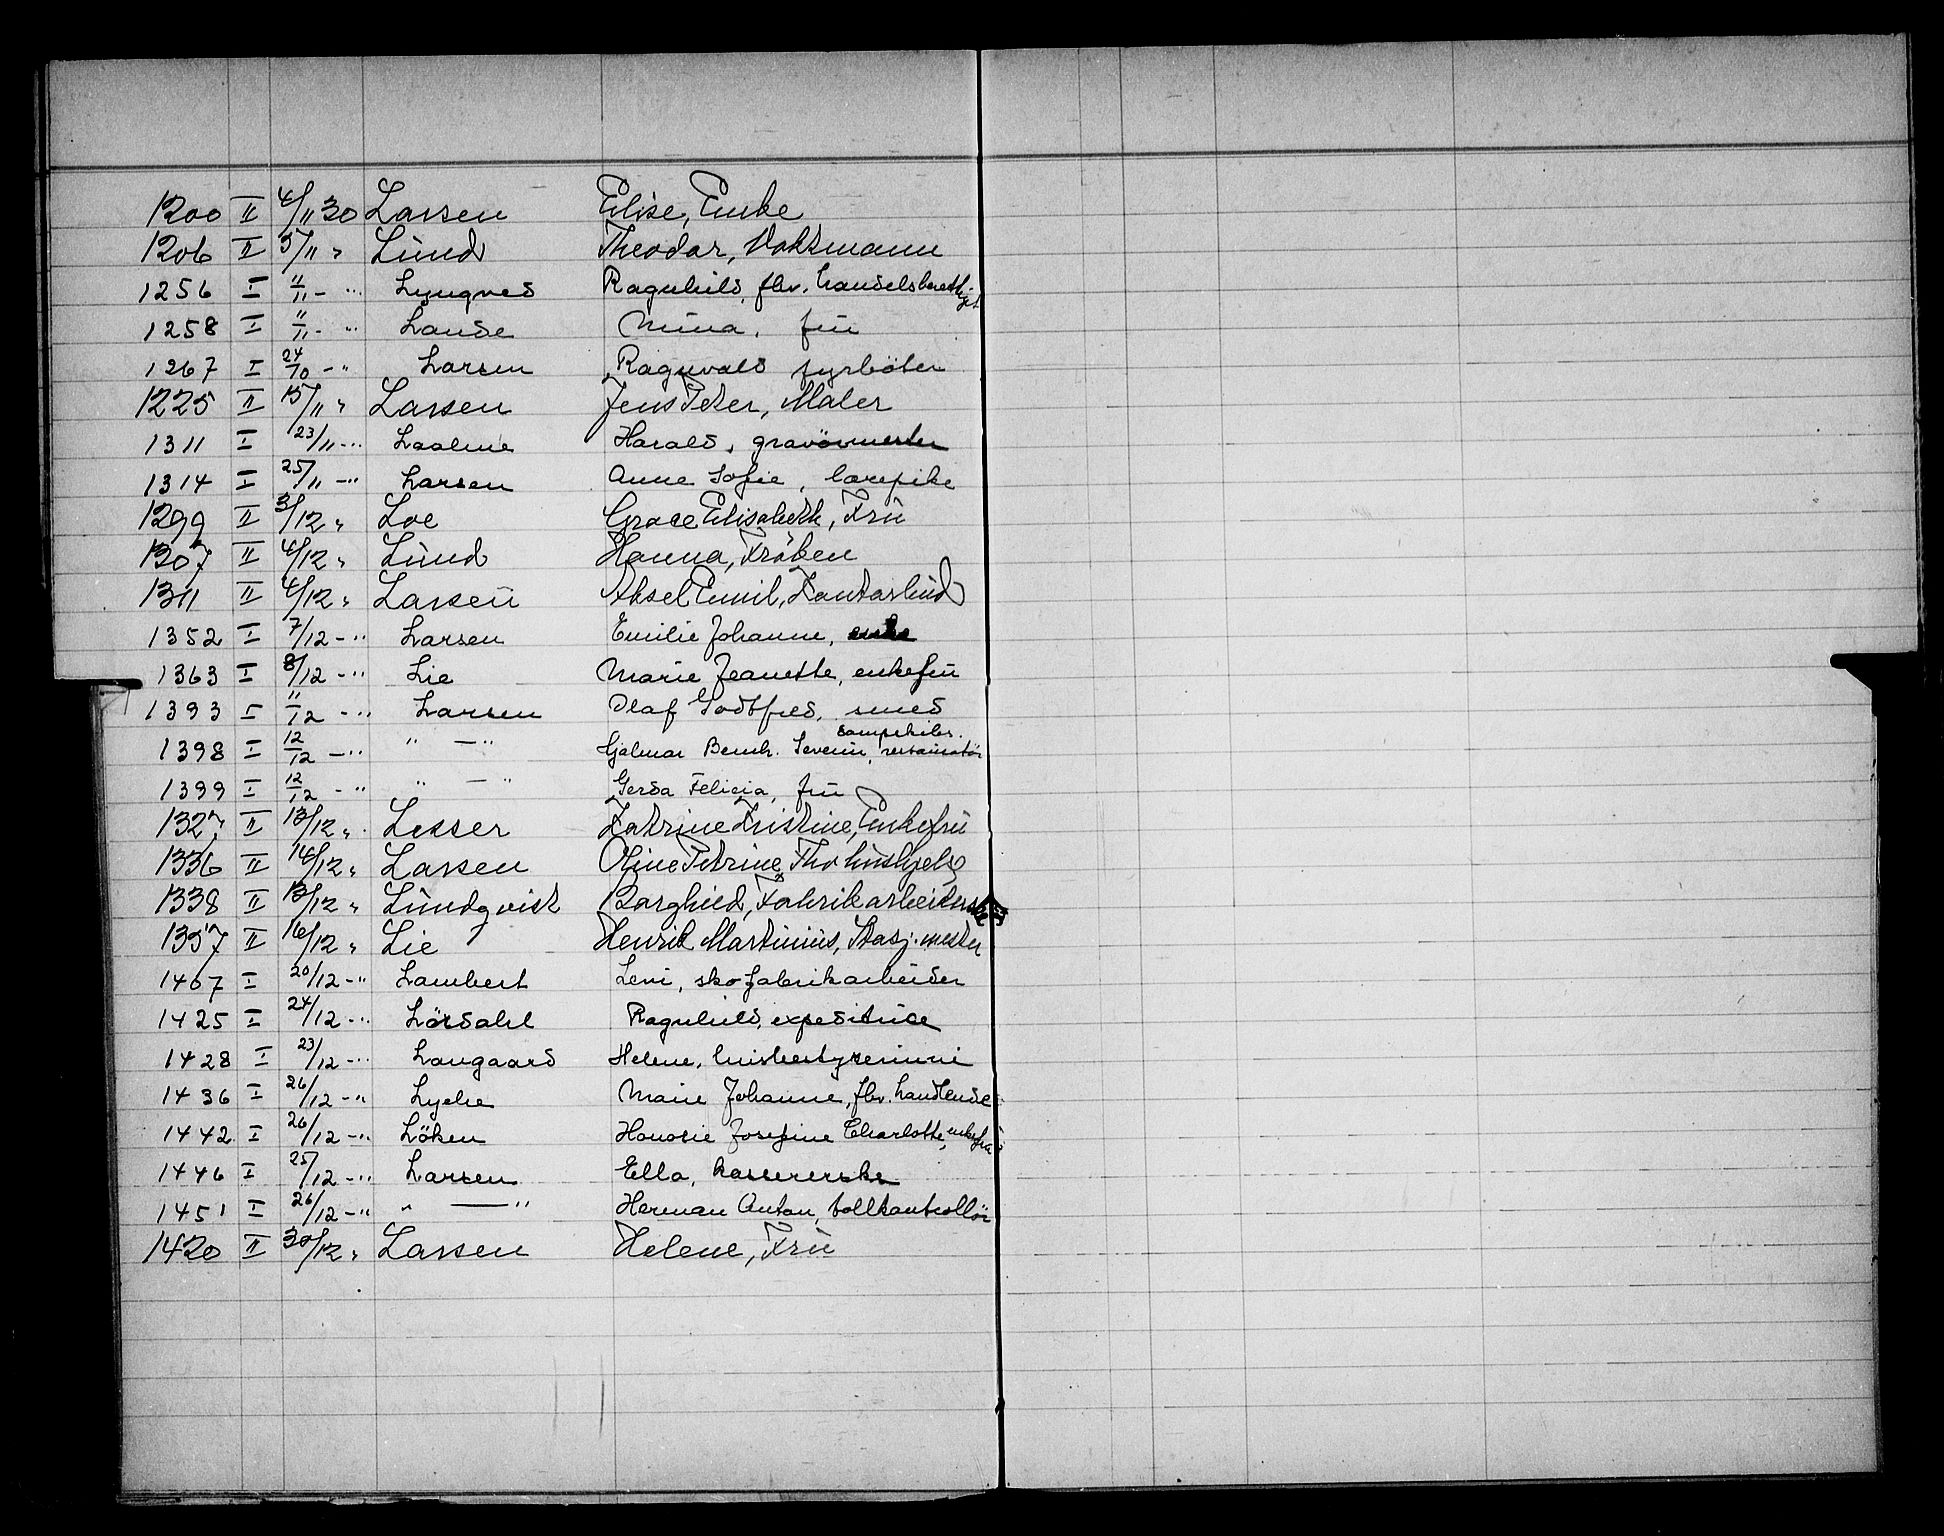 1200 II 4/11 30 Larsen Elise, Enke
1206 II 5/11 " Lund Theodor, Vaktmann
1256 I 11/11 - " Lyngved Ragnhild, fhv. handelsberettiget
1258 I 11/11 - " Lande Mina, frü
1267 I 24/10 - " Larsen Ragnvald fyrböter
1225 II 15/11 " Larsen Jens Peter, Maler
1311 I 23/11 - " Laalme Harald, gravörmester
1314 I 25/11 - " Larsen Anne Sofie, larepike
1299 II 3/12 " Loe Grace Elisabeth, Frü
1307 II 4/12 " Lünd Hanna, Fröken
1311 II 4/12 " Larsen Aksel Emil, Kontorbüd
1352 I 7/12 - " Larsen Emilie Johanne, enke
1363 I 8/12 - " Lie Marie Jeanette, enkefrü
1393 I 11/12 - " Larsen Olaf Godtfred, smed
1398 I 12/12 - " " — " Hjalmar Bernh. Severin,
1399 I 12/12 - " " — " Gerda Felicia, frü
1327 II 13/12 " Lesser Katrine Kristine, Enkefrü
1336 II 14/12 " Larsen Oline Petrine, Fhv hüshjelp
1338 II 13/12 " Lündqvist Borghild, Fabrikarbeiterske
1357 II 16/12 " Lie Henrik Martinius, Stasj.mester
1407 I 20/12 - " Lambert Levi, skofabrikarbeider
1425 I 24/12 - " Lördahl Ragnhild, expeditrice
1428 I 23/12 - " Langaard Helene, hüsbestyrerinne
1436 I 26/12 - " Lyche Marie Johanne, fhv. handlende
1442 I 26/12 - " Löken Honorie Josefine Charlotte, enkefrü
1446 I 25/12 - " Larsen Ella, kassererske
1451 I 26/12 - " " — " Herman Anton, tollkontrollör
1420 II 30/12 " Larsen Helene, Frü